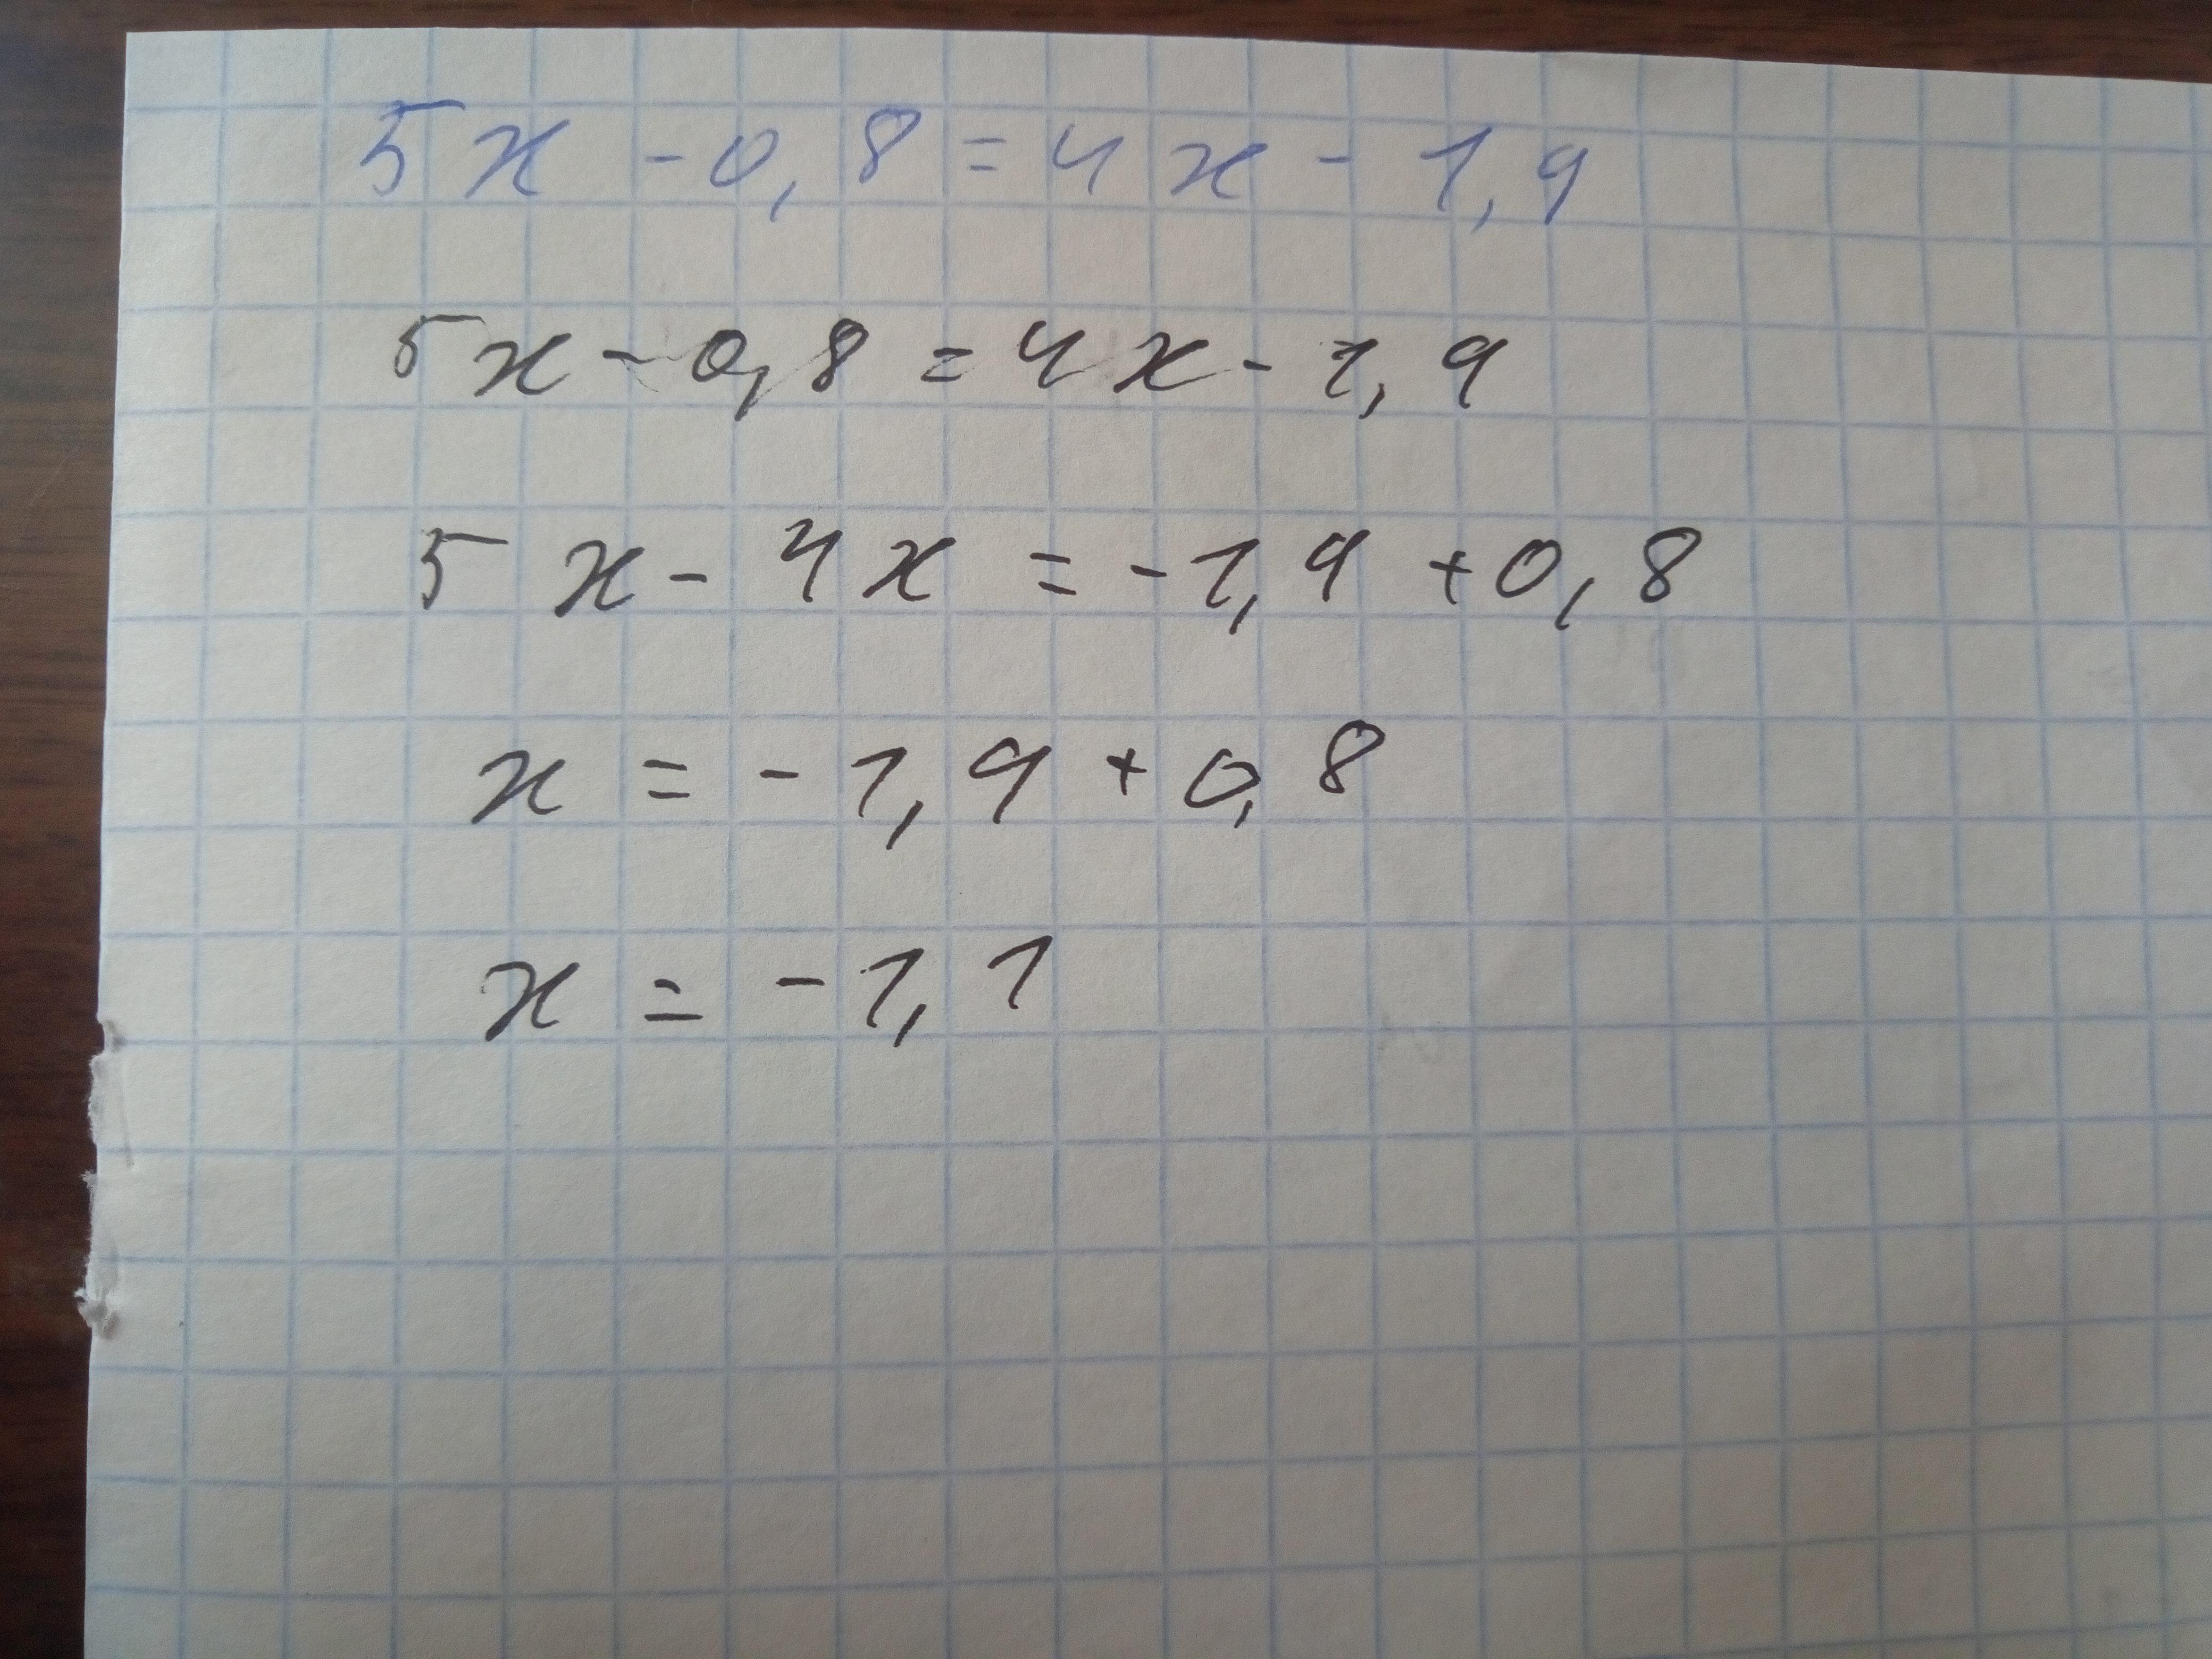 5x - 0,8 = 4x - 1,9
5x - 0,8 = 4x - 1,9
5x - 4x = -1,9 + 0,8
x = -1,9 + 0,8
x = -1,1